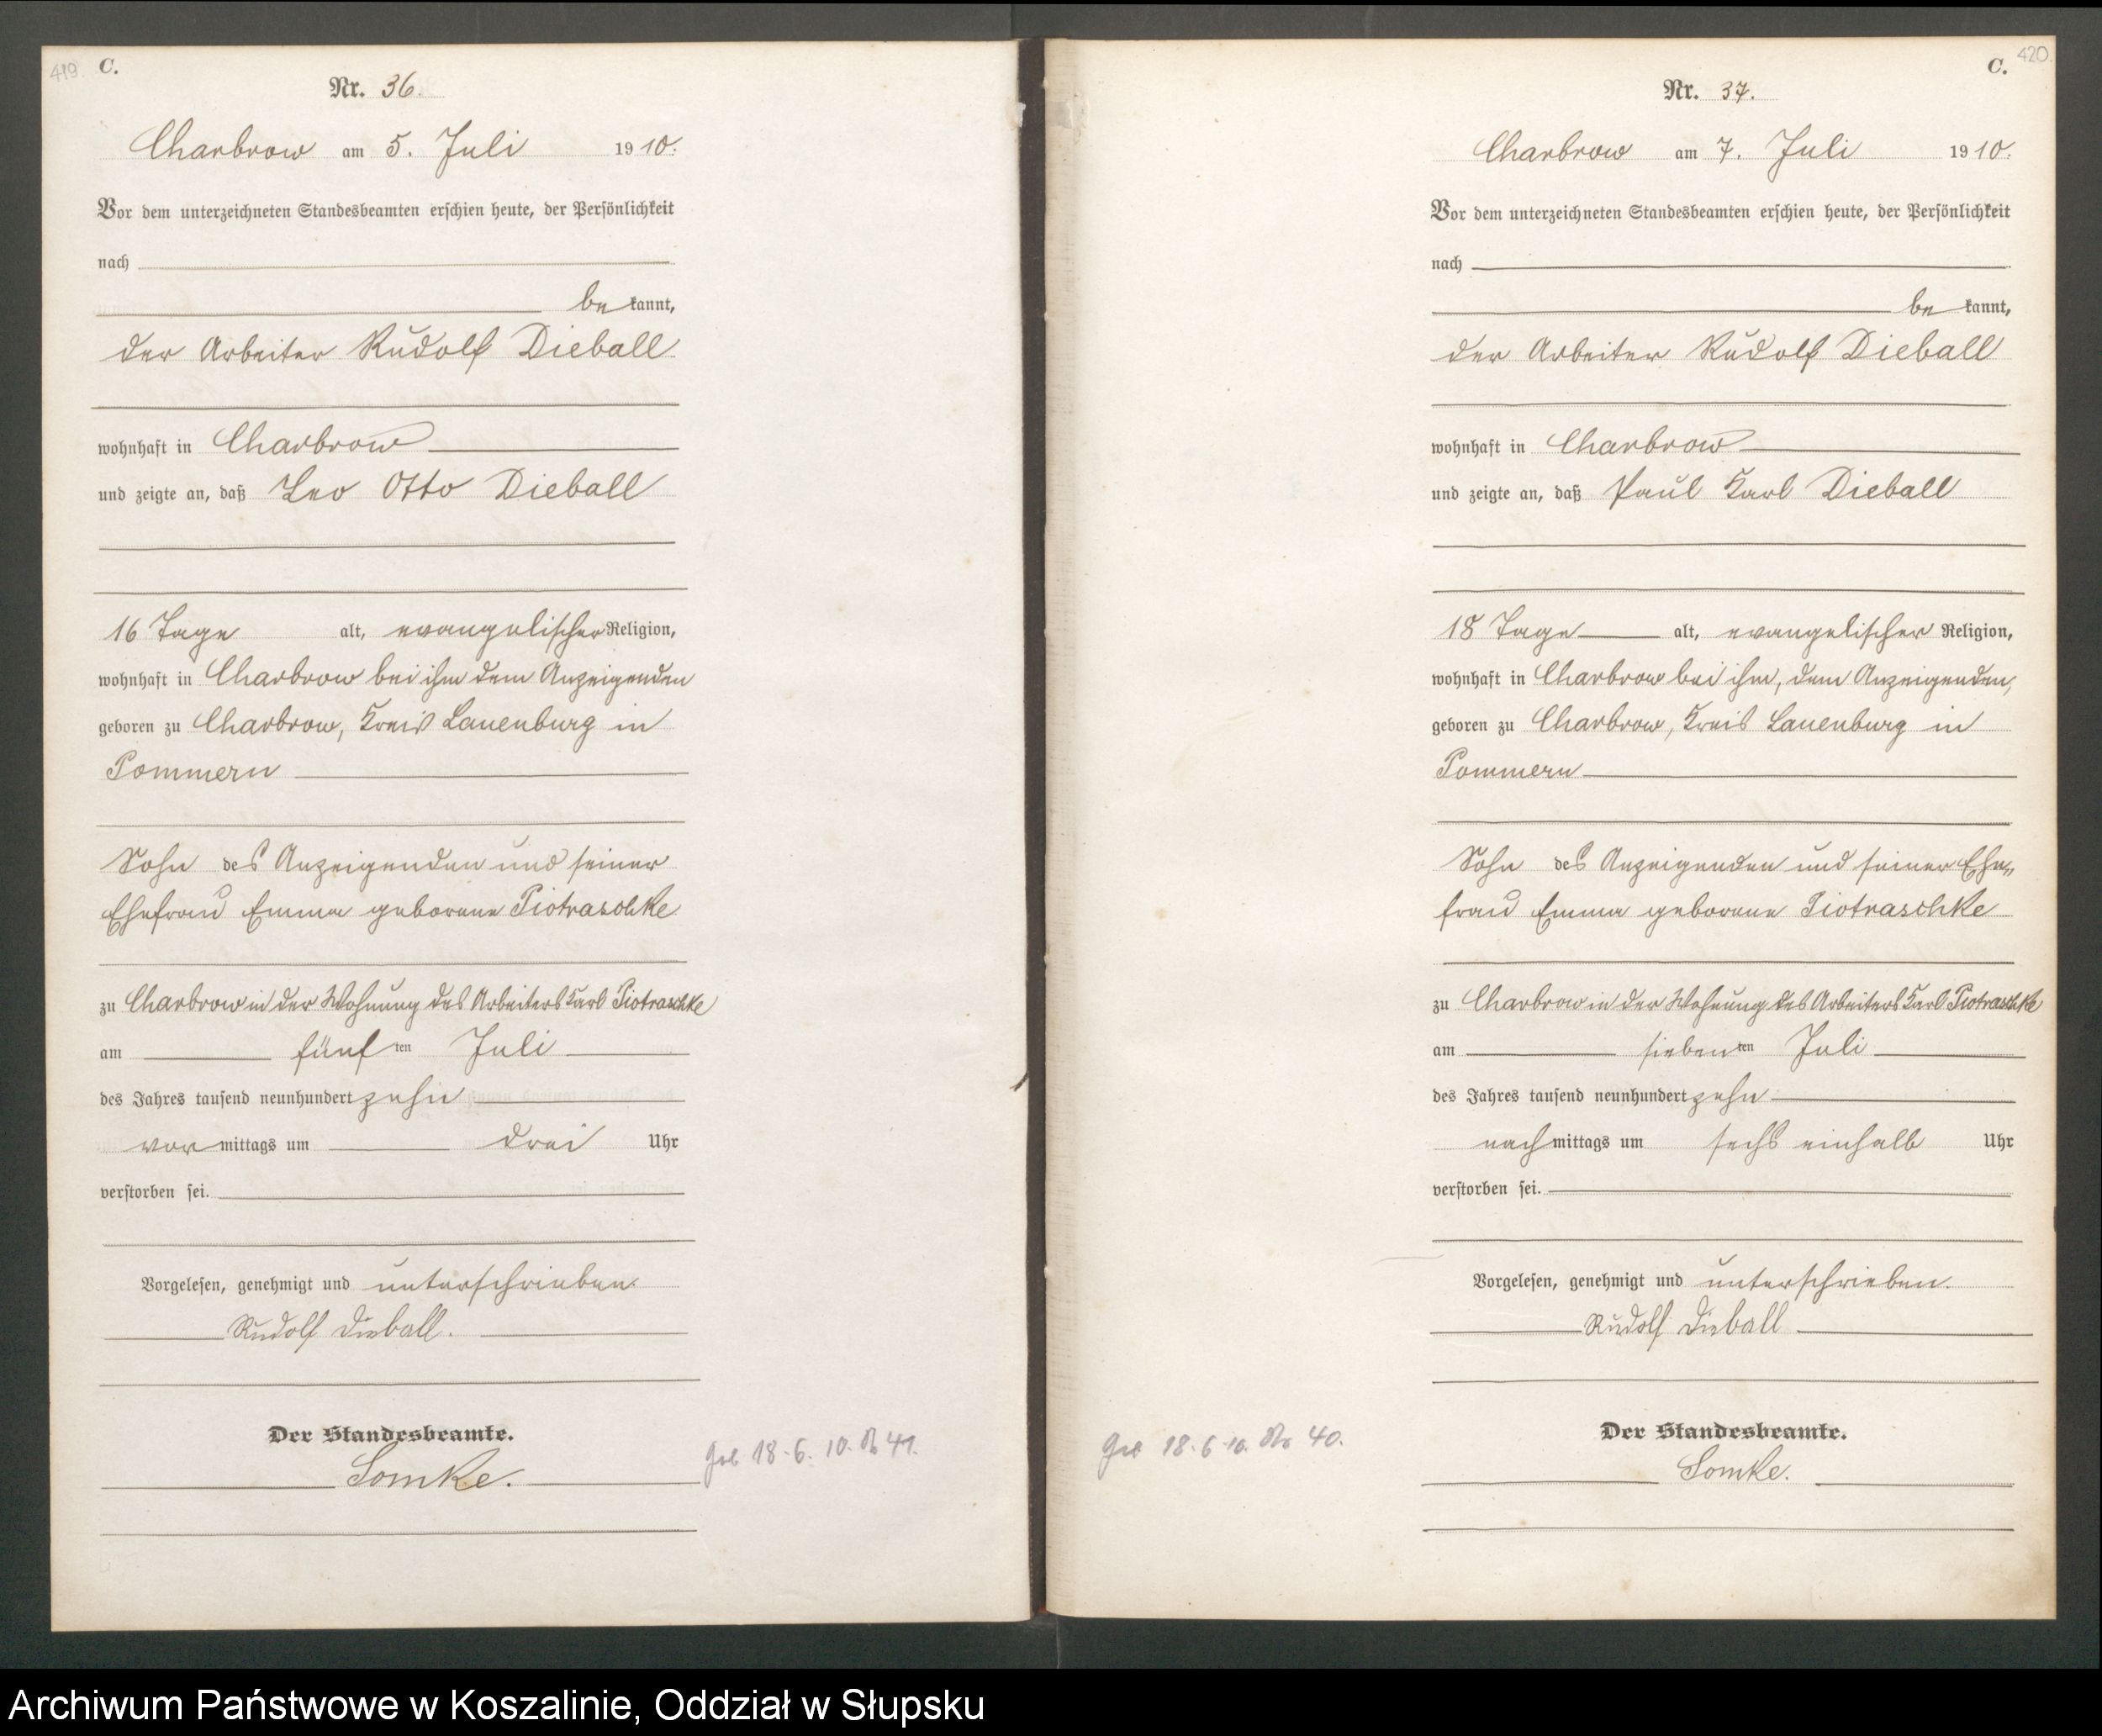 419.
C.
Nr. 36.
Charbrow am 5. Juli 1910.
Vor dem unterzeichneten Standesbeamten erschien heute, der Persönlichkeit
nach
be kannt,
der Arbeiter Rudolf Dieball
wohnhaft in Charbrow
und zeigte an, daß Leo Otto Dieball
16 Tage alt, evangelischer Religion,
wohnhaft in Charbrow bei ihm dem Anzeigenden
geboren zu Charbrow, Kreis Lauenburg in
Pommern
Sohn des Anzeigenden und seiner
Ehefrau Emma geborene Piotraschke
zu Charbrow in der Wohnung des Arbeiters Karl Piotraschke
am fünften Juli
des Jahres tausend neunhundert zehn
vormittags um drei Uhr
verstorben sei.
Vorgelesen, genehmigt und unterschrieben.
Rudolf Dieball.
Der Standesbeamte.
Lomke.
Geb 18.6.10. Nr 41.
420.
C.
Nr. 37.
Charbrow am 7. Juli 1910.
Vor dem unterzeichneten Standesbeamten erschien heute, der Persönlichkeit
nach
be kannt,
der Arbeiter Rudolf Dieball
wohnhaft in Charbrow
und zeigte an, daß Paul Karl Dieball
18 Tage alt, evangelischer Religion,
wohnhaft in Charbrow bei ihm, dem Anzeigenden,
geboren zu Charbrow, Kreis Lauenburg in
Pommern
Sohn des Anzeigenden und seiner Ehe„
frau Emma geborene Piotraschke
zu Charbrow in der Wohnung des Arbeiters Karl Piotraschke
am siebenten Juli
des Jahres tausend neunhundert zehn
nachmittags um sechs einhalb Uhr
verstorben sei.
Vorgelesen, genehmigt und unterschrieben.
Rudolf Dieball
Der Standesbeamte.
Lomke.
Geb 18.6.10. Nr 40.
Archiwum Państwowe w Koszalinie, Oddział w Słupsku